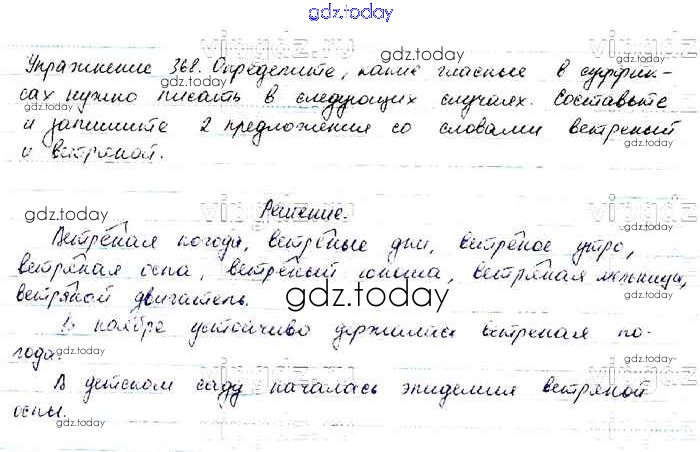 gdz.today
Упражнение 368. Определите, какие гласные в суффик-
сах нужно писать в следующих случаях. Составьте
и запишите 2 предложения со словами ветреный
и ветряной.
Решение.
Ветреная погода, ветреные дни, ветреное утро,
ветряная оспа, ветреный юноша, ветряная мельница,
ветряной двигатель.
gdz.today
В ноябре устойчиво держилась ветреная по-
года.
В детском саду началась эпидемия ветряной
оспы.